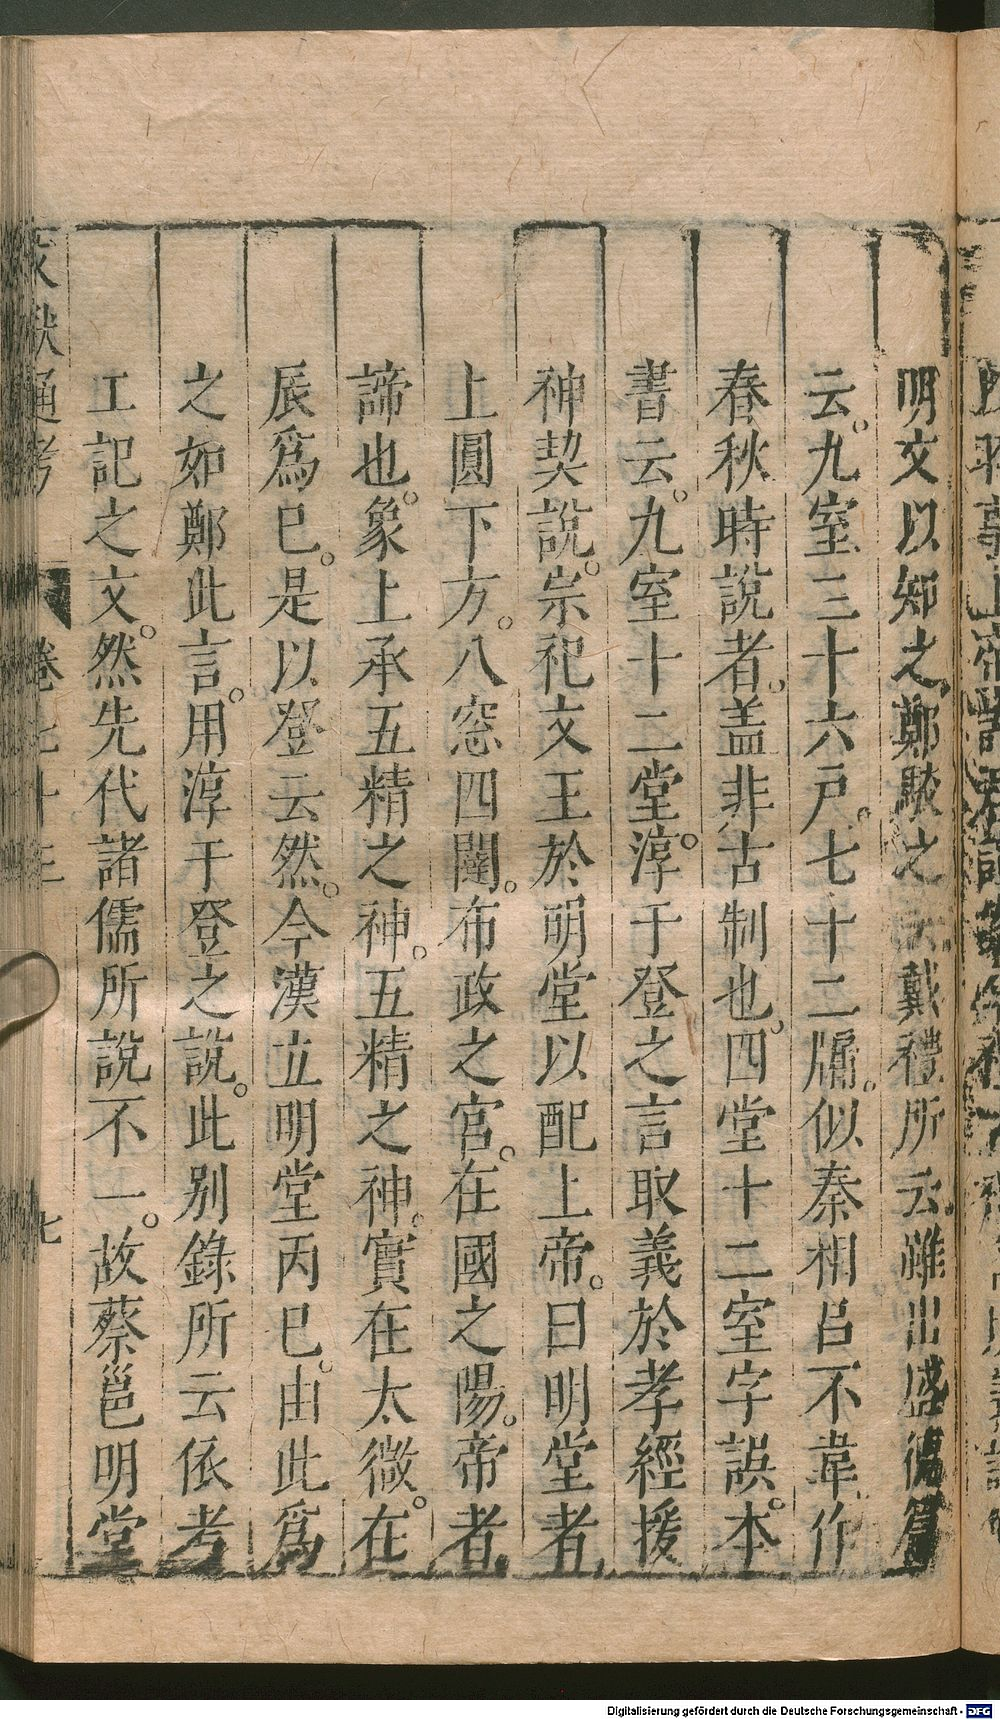 明文以知之鄭駮之云戴禮所云雖出盛德篇
云。九室三十六戶。七十二牖。似秦相呂不韋作
春秋時說者。蓋非古制也。四堂十二室字誤。本
書云。九室十二堂。淳于登之言取義於孝經援
神契說。宗祀文王於明堂以配上帝。曰明堂者
上圓下方。八窓四闥。布政之宮。在國之陽。帝者
諦也。象上承五精之神。五精之神。實在太微。在
辰爲巳。是以登云然。今漢立明堂丙巳。由此爲
之如鄭此言。用淳于登之說。此别錄所云依考
工記之文。然先代諸儒所說不一。故蔡邕明堂
文獻通考 卷七十三 七
Digitalisierung gefördert durch die Deutsche Forschungsgemeinschaft - DFG